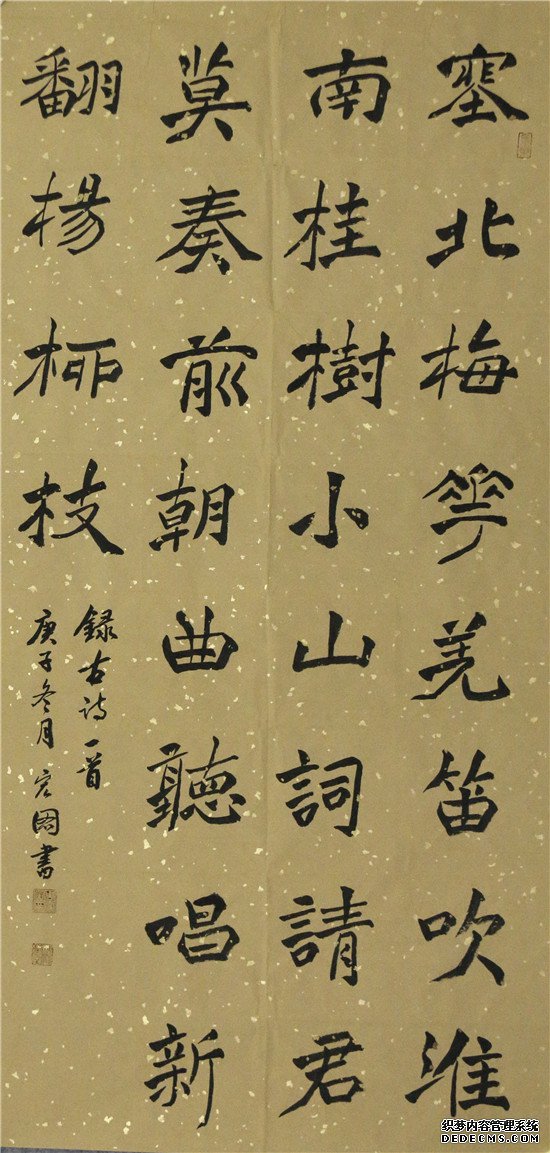 塞北梅花羌笛吹淮
南桂樹小山詞請君
莫奏前朝曲聽唱新
翻楊柳枝
録古诗一首
庚子冬月宏图書
织梦内容管理系统
DEDECMS.COM